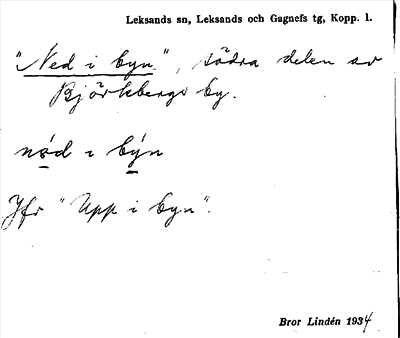 Leksands sn, Leksands och Gagnefs tg, Kopp. l.
"Ned i byn", södra delen av
Björkbergs by.
nød ı býn
Jfr "Upp i byn".
Bror Lindén 1934